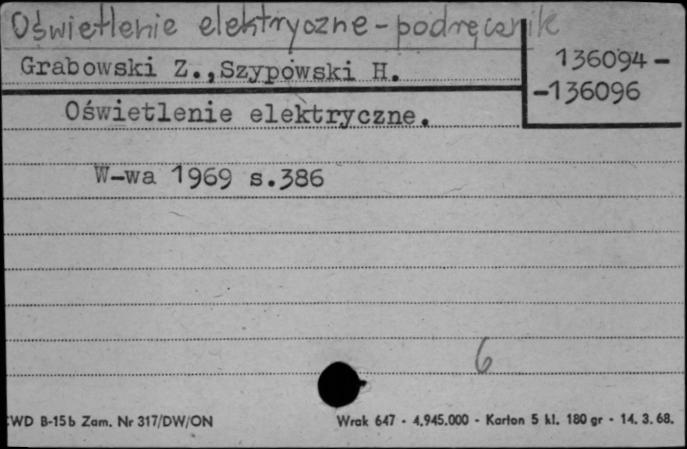 Oświetlenie elektryczne - podręcznik
Grabowski Z., Szypowski H.
136094 -
-136096
Oświetlenie elektryczne.
W-wa 1969 s.386
6
CWD B-15b Zam. Nr 317/DW/ON
Wrak 647 - 4.945.000 - Karton 5 kl. 180 gr - 14. 3. 68.